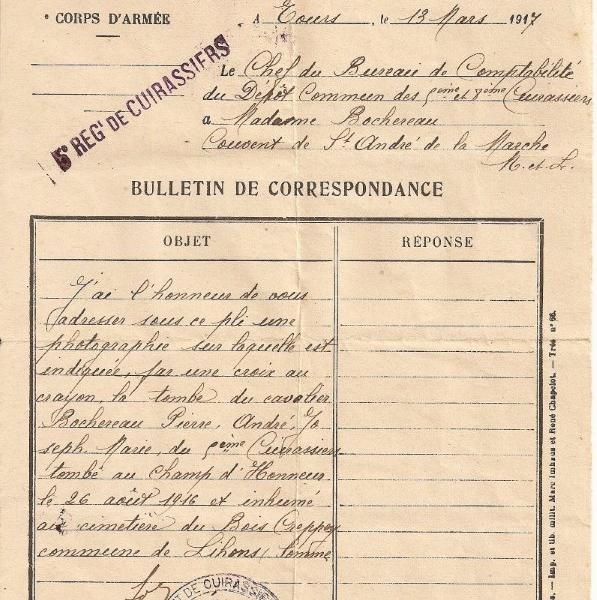 e CORPS D'ARMÉE
A Tours, le 13 Mars 1917
5e REGt DE CUIRASSIERS
Le Chef du Bureau de Comptabilité
du Dépôt Commun des 5ème et 8ème Cuirassiers
a Madame Bochereau
Couvent de St André de la Marche
M. et L.
BULLETIN DE CORRESPONDANCE
OBJET
RÉPONSE
J'ai l'honneur de vous
adresser sous ce pli une
photographie sur laquelle est
indiquée, par une croix au
crayon, la tombe du cavalier
Bochereau Pierre, André, Jo
seph, Marie, du 5ème Cuirassiers
tombé au Champ d'Honneur
le 26 août 1916 et inhumé
au cimetière du Bois Crepey
commune de Lihons (Somme
T DE CUIRASSIE
Imp. et lib. milit. Marc Imhaus et René Chapelot. — Trés n° 96.